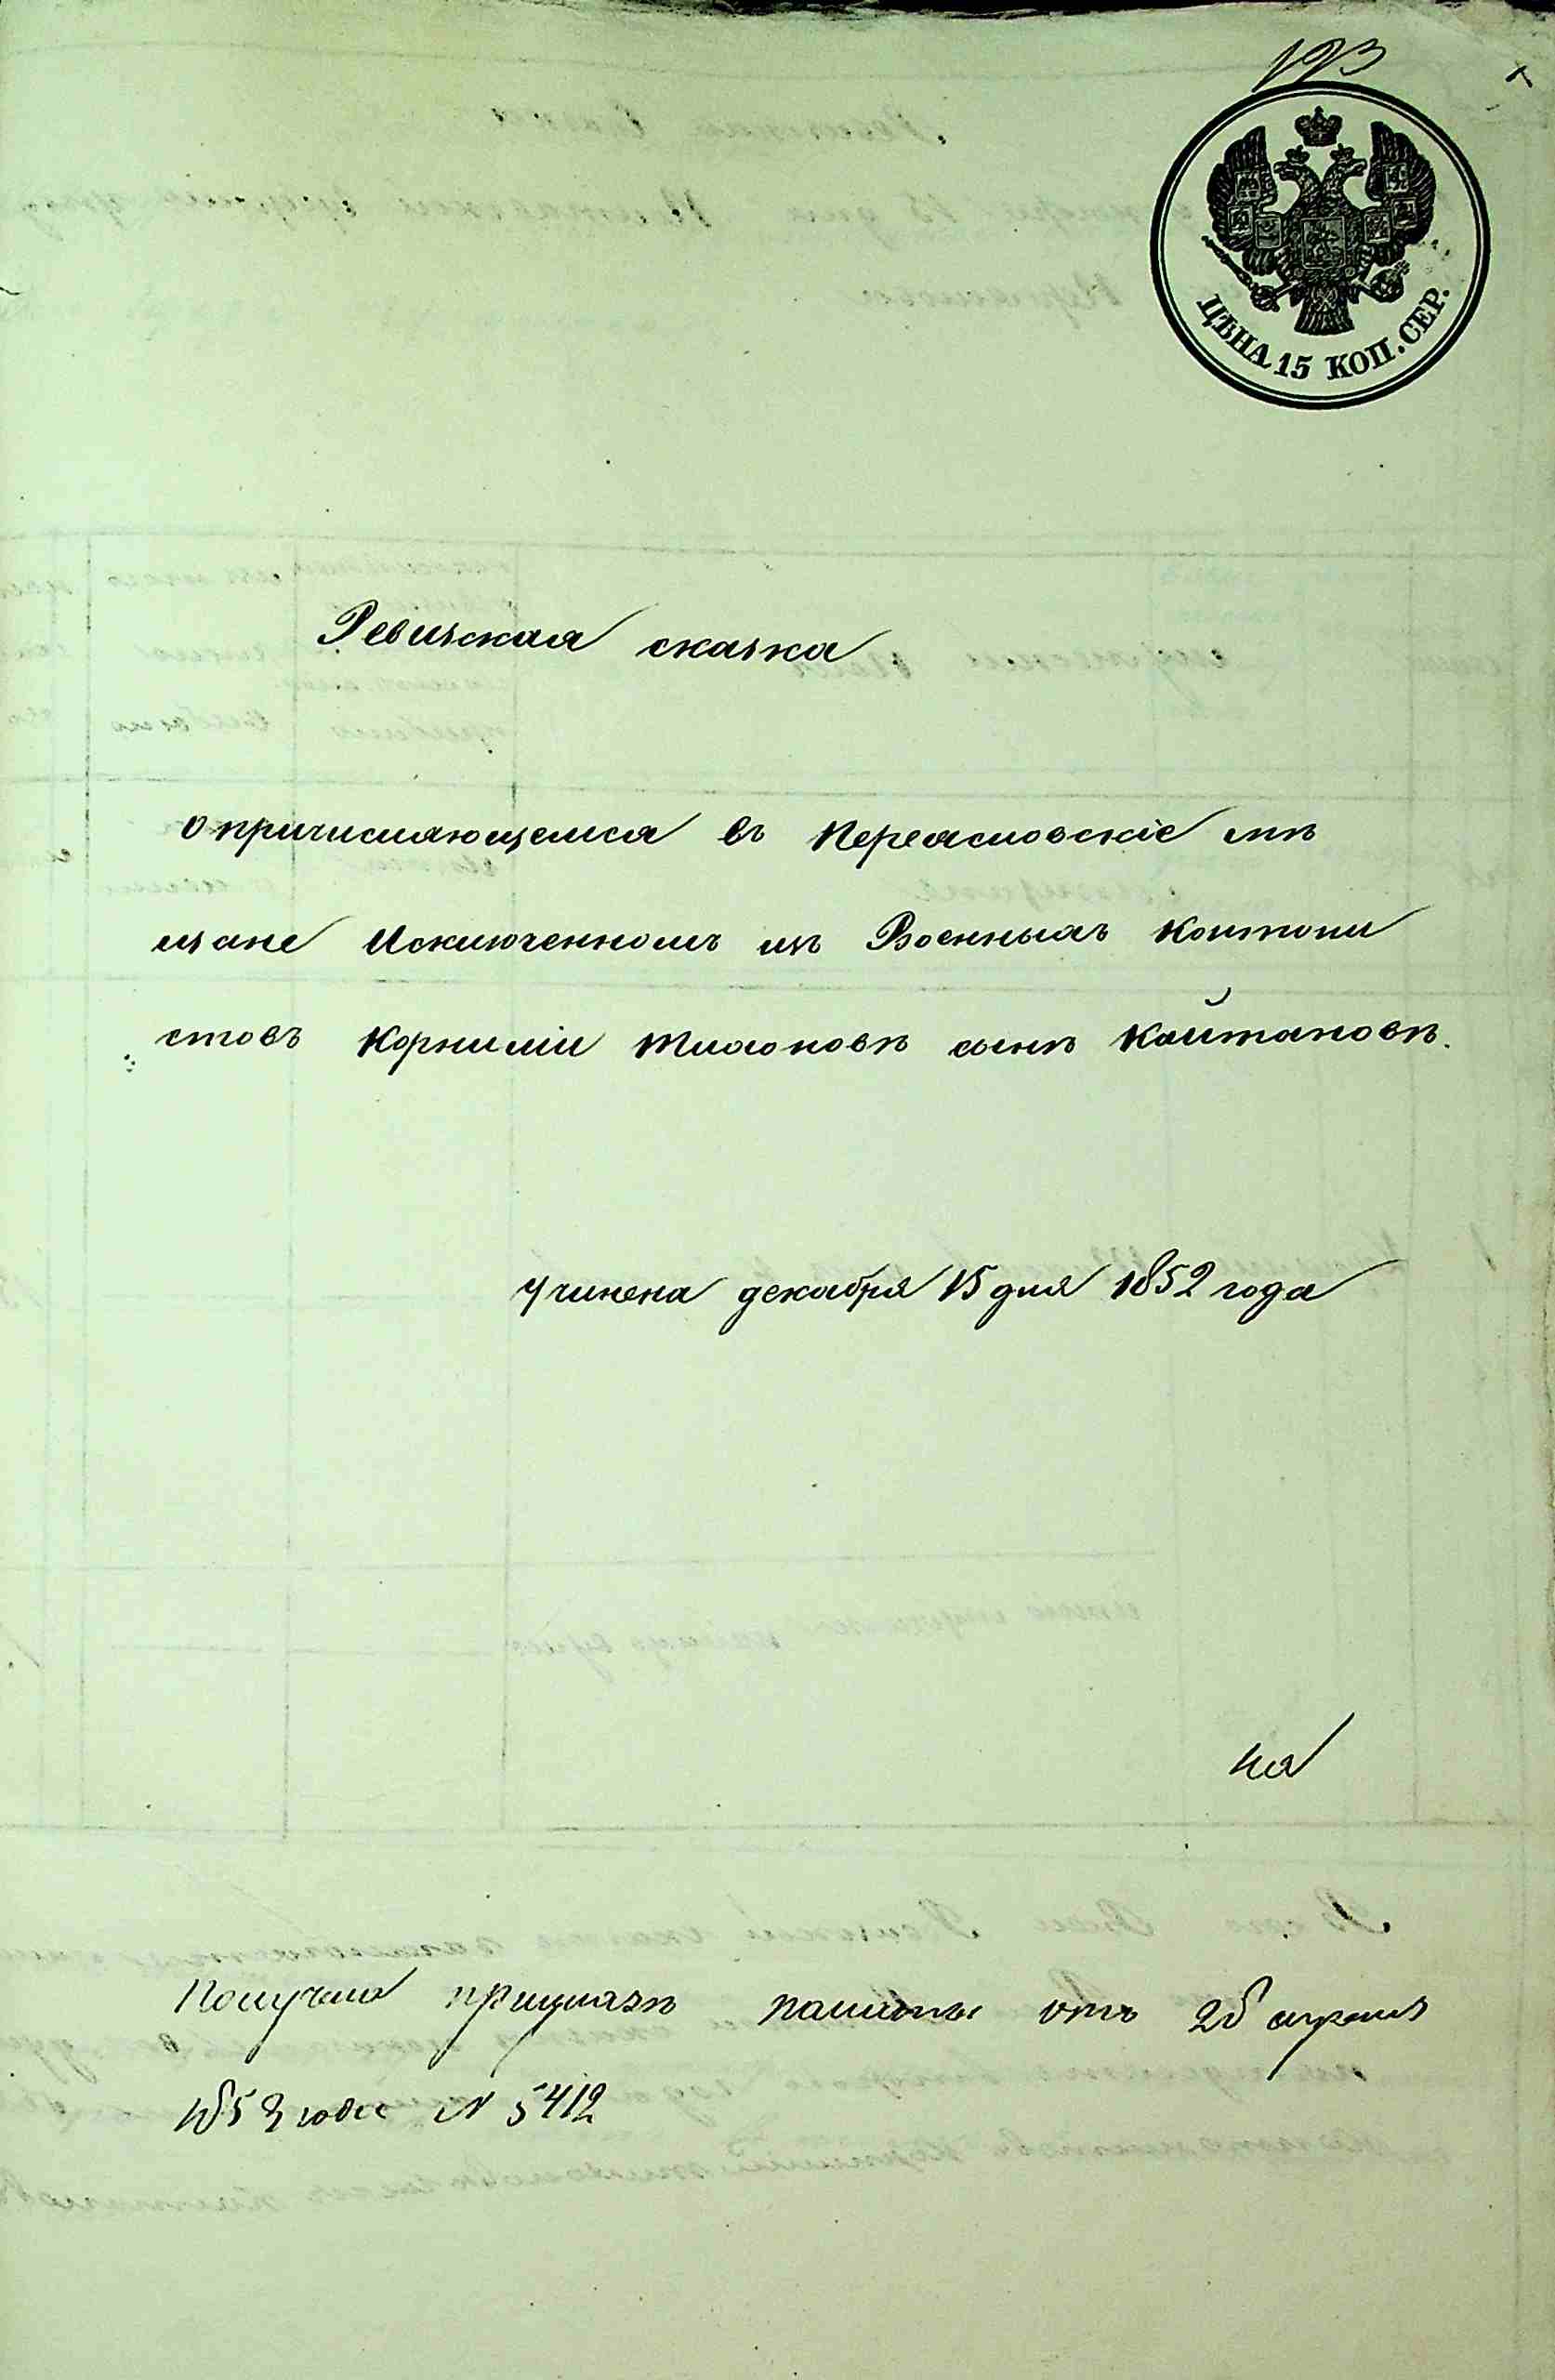 123
ЦѢНА 15 КОП. СЕР.
Ревизская сказка
о причисляющемся въ Переясловскіе мѣ
щане Исключенномъ изъ Военныхъ Контони
стовъ Корнилiи Тихоновъ сынъ Койтановъ.
Учинена декабря 15 дня 1852 года
На
Получена при указѣ палаты отъ 28 апреля
1853 года N 5412